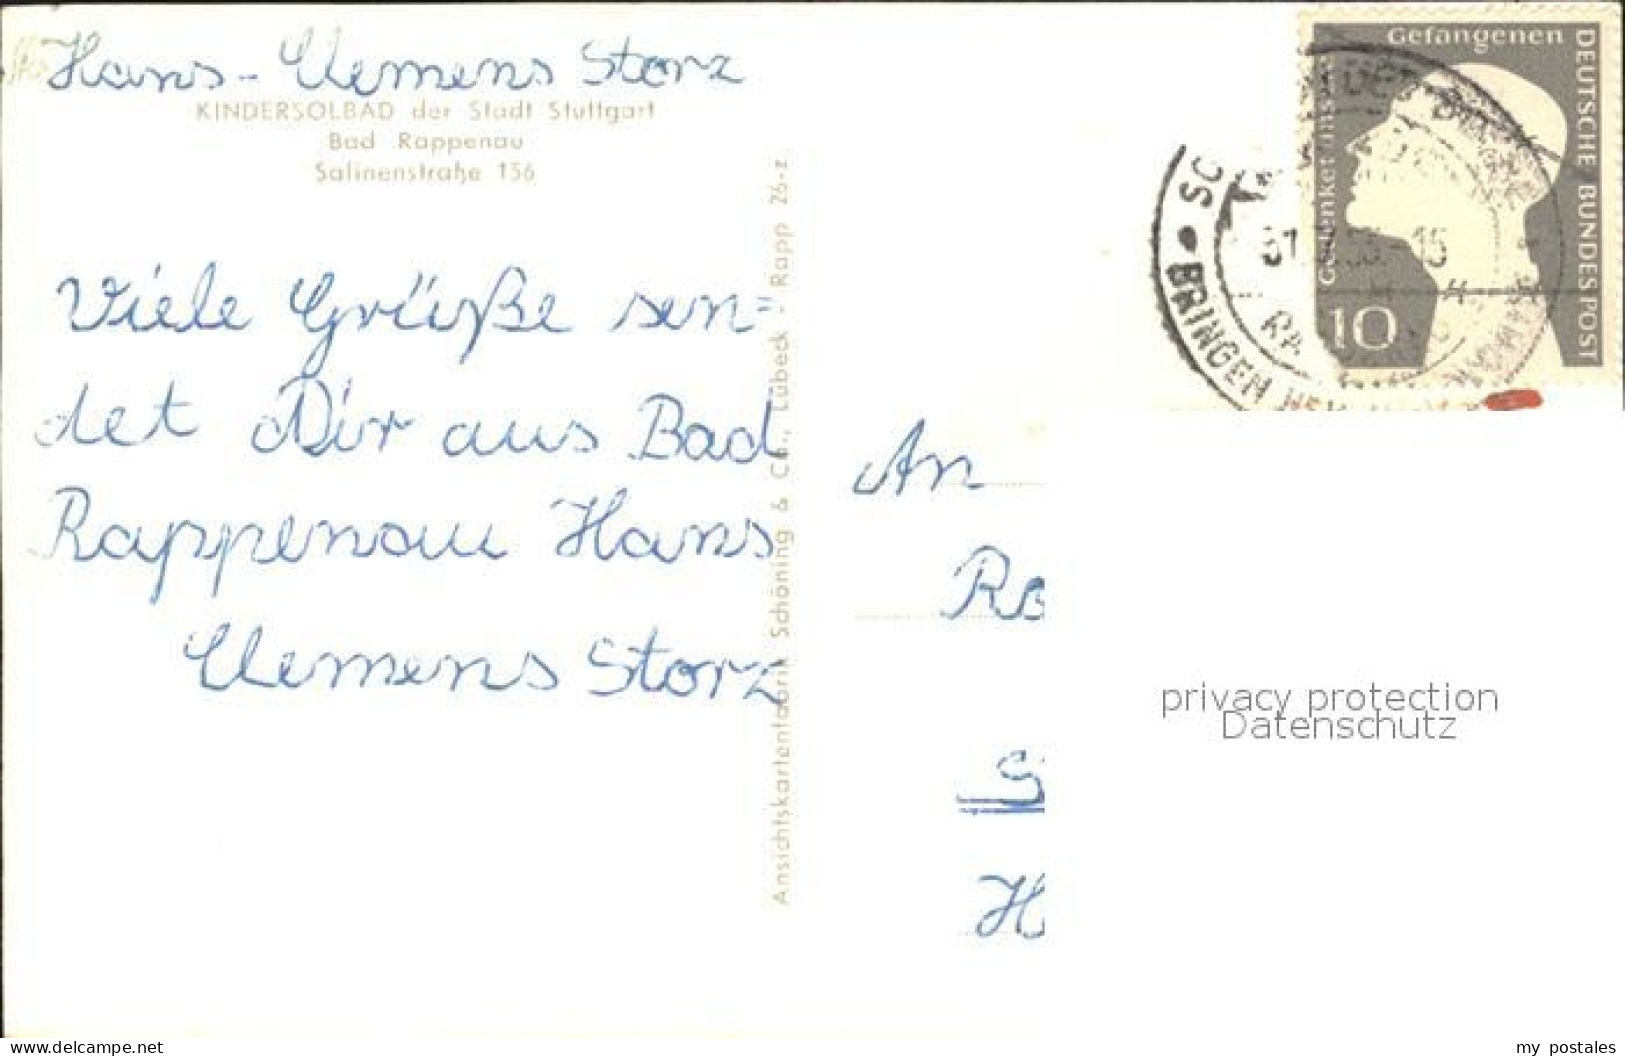 Hans-Clemens Storz
KINDERSOLBAD der Stadt Stuttgart
Bad Rappenau
Salinenstraße 156
Viele Grüße sen=
det Dir aus Bad
Rappenau Hans
Clemens Storz
Ansichtskartenfabrik Schöning & Co., Lübeck - Rapp 26-z
Gedenket uns
Gefangenen
DEUTSCHE BUNDESPOST
10
BRINGEN
15
An
privacy protection
Datenschutz
www.delcampe.net
my postales